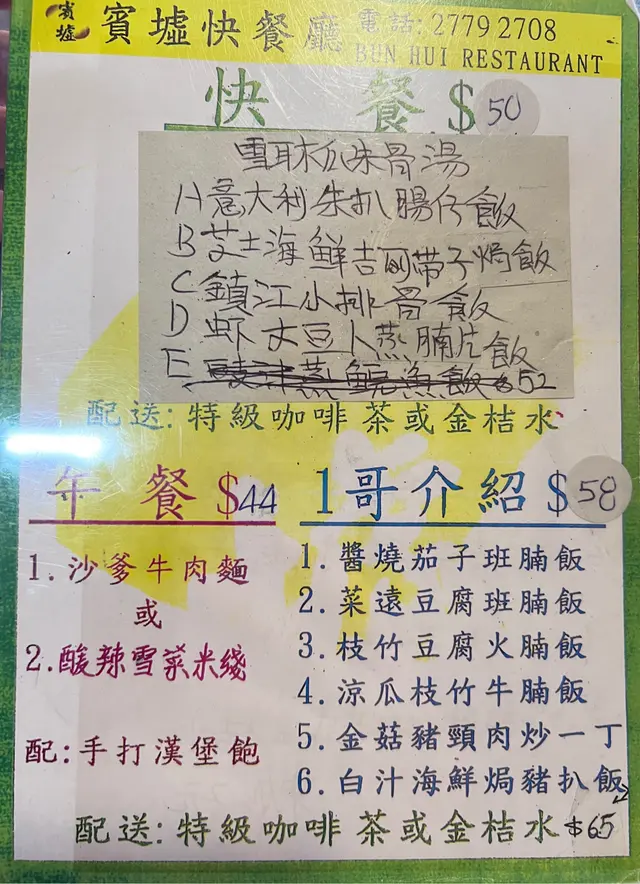 賓墟
賓墟快餐廳
電話: 2779 2708
BUN HUI RESTAURANT
快餐 $50
雪耳木瓜味骨湯
A 意大利朱扒腸仔飯
B 芝士海鮮吉列帶子焗飯
C 鎮江小排骨飯
D 虾丈豆卜蒸腩片飯
E 蒸魚飯 52
配送: 特級咖啡茶或金桔水
午餐 $44
1. 沙爹牛肉麵
或
2. 酸辣雪菜米綫
配: 手打漢堡飽
1哥介紹 $58
1. 醬燒茄子班腩飯
2. 菜遠豆腐班腩飯
3. 枝竹豆腐火腩飯
4. 涼瓜枝竹牛腩飯
5. 金菇豬頸肉炒一丁
6. 白汁海鮮焗豬扒飯
$65
配送: 特級咖啡茶或金桔水